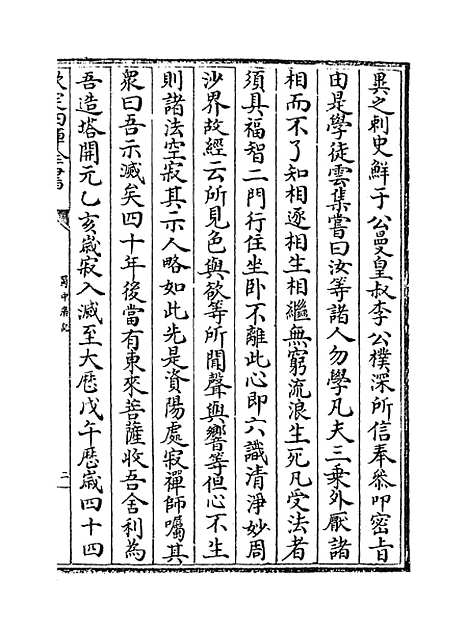 異之刺史鮮于公叟皇叔李公樸深所信奉叅叩密旨
由是學徒雲集嘗曰汝等諸人勿學凡夫三乗外厭諸
相而不了知相逐相生相繼無窮流浪生死凡受法者
須具福智二門行住坐卧不離此心即六識清淨妙周
沙界故經云所見色與欲等所聞聲與響等但心不生
則諸法空寂其示人略如此先是資陽處寂禪師囑其
衆曰吾示滅矣四十年後當有東來菩薩收吾舍利為
吾造塔開元乙亥嵗寂入滅至大厯戊午厯嵗四十四
欽定四庫全書
蜀中廣記
二